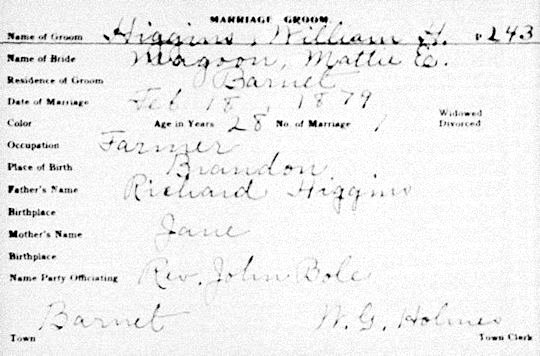 MARRIAGE GROOM
Name of Groom Higgins, William H. P 243
Name of Bride Magoon, Mattie E.
Residence of Groom Barnet
Date of Marriage Feb 18, 1879
Color Age in Years 28 No. of Marriage 1 Widowed Divorced
Occupation Farmer
Place of Birth Brandon
Father's Name Richard Higgins
Birthplace
Mother's Name Jane
Birthplace
Name Party Officiating Rev. John Bole
Barnet W. G. Holmes
Town Town Clerk